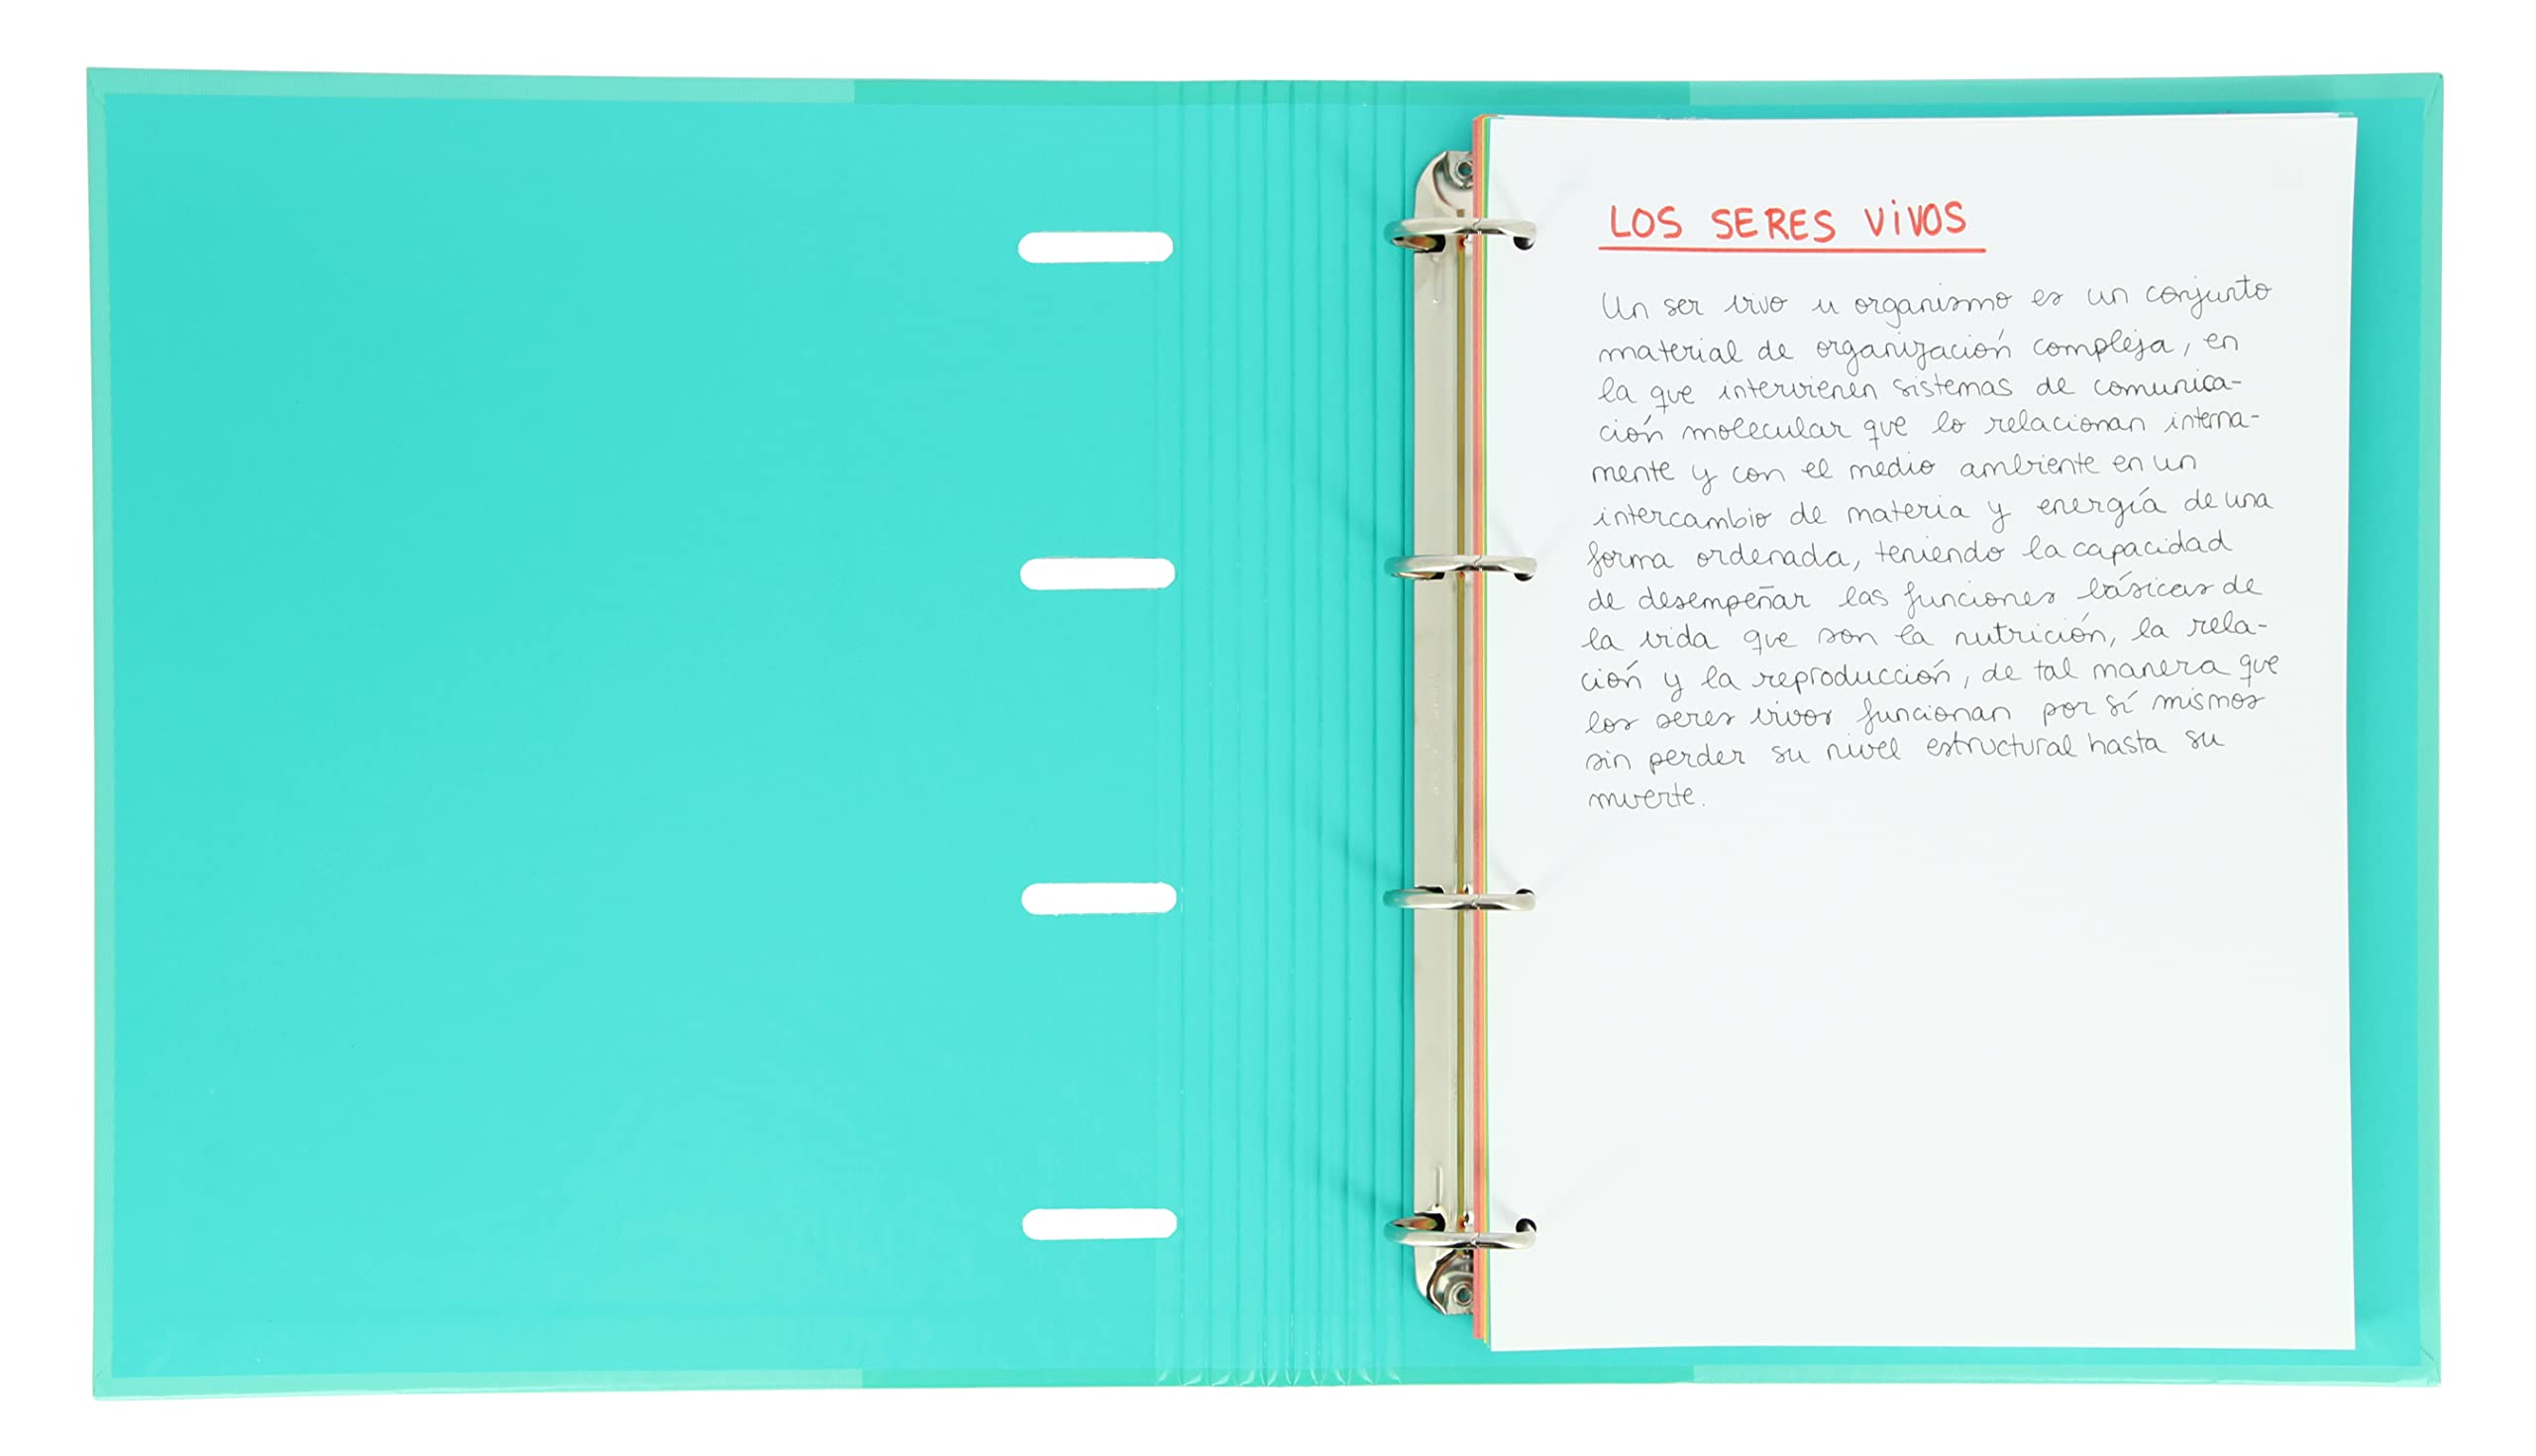 LOS SERES ViVOS
Un ser vivo u organismo es un conjunto
material de organización compleja, en
la que intervienen sistemas de comunica-
ción molecular que lo relacionan interna-
mente y con el medio ambiente en un
intercambio de materia y energía de una
forma ordenada, teniendo la capacidad
de desempeñar las funciones básicas de
la vida que son la nutrición, la rela-
ción y la reproducción, de tal manera que
los seres vivos funcionan por sí mismos
sin perder su nivel estructural hasta su
muerte.